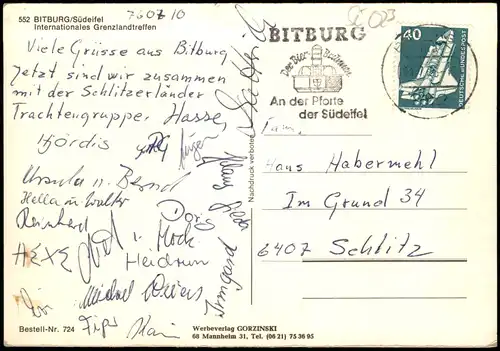 552 BITBURG/Südeifel
Internationales Grenzlandtreffen
760710
Viele Grüsse aus Bitburg
Jetzt sind wir zusammen
mit der Schlitzerländer
Trachtengruppe, Hasse,
Hjördis
Jürgen
Ursula u. Bernd
Hella u. Walter
Reinhard
Doris
u. Mock
Heidrun
Michael
Klaus
Irmgard
Bestell-Nr. 724
BITBURG
Der Bier Brunnen
An der Pforte
der Südeifel
40
DEUTSCHE BUNDESPOST
Nachdruck verboten
Fam.
Hans Habermehl
Im Grund 34
6407 Schlitz
Werbeverlag GORZINSKI
68 Mannheim 31, Tel. (06 21) 75 36 95